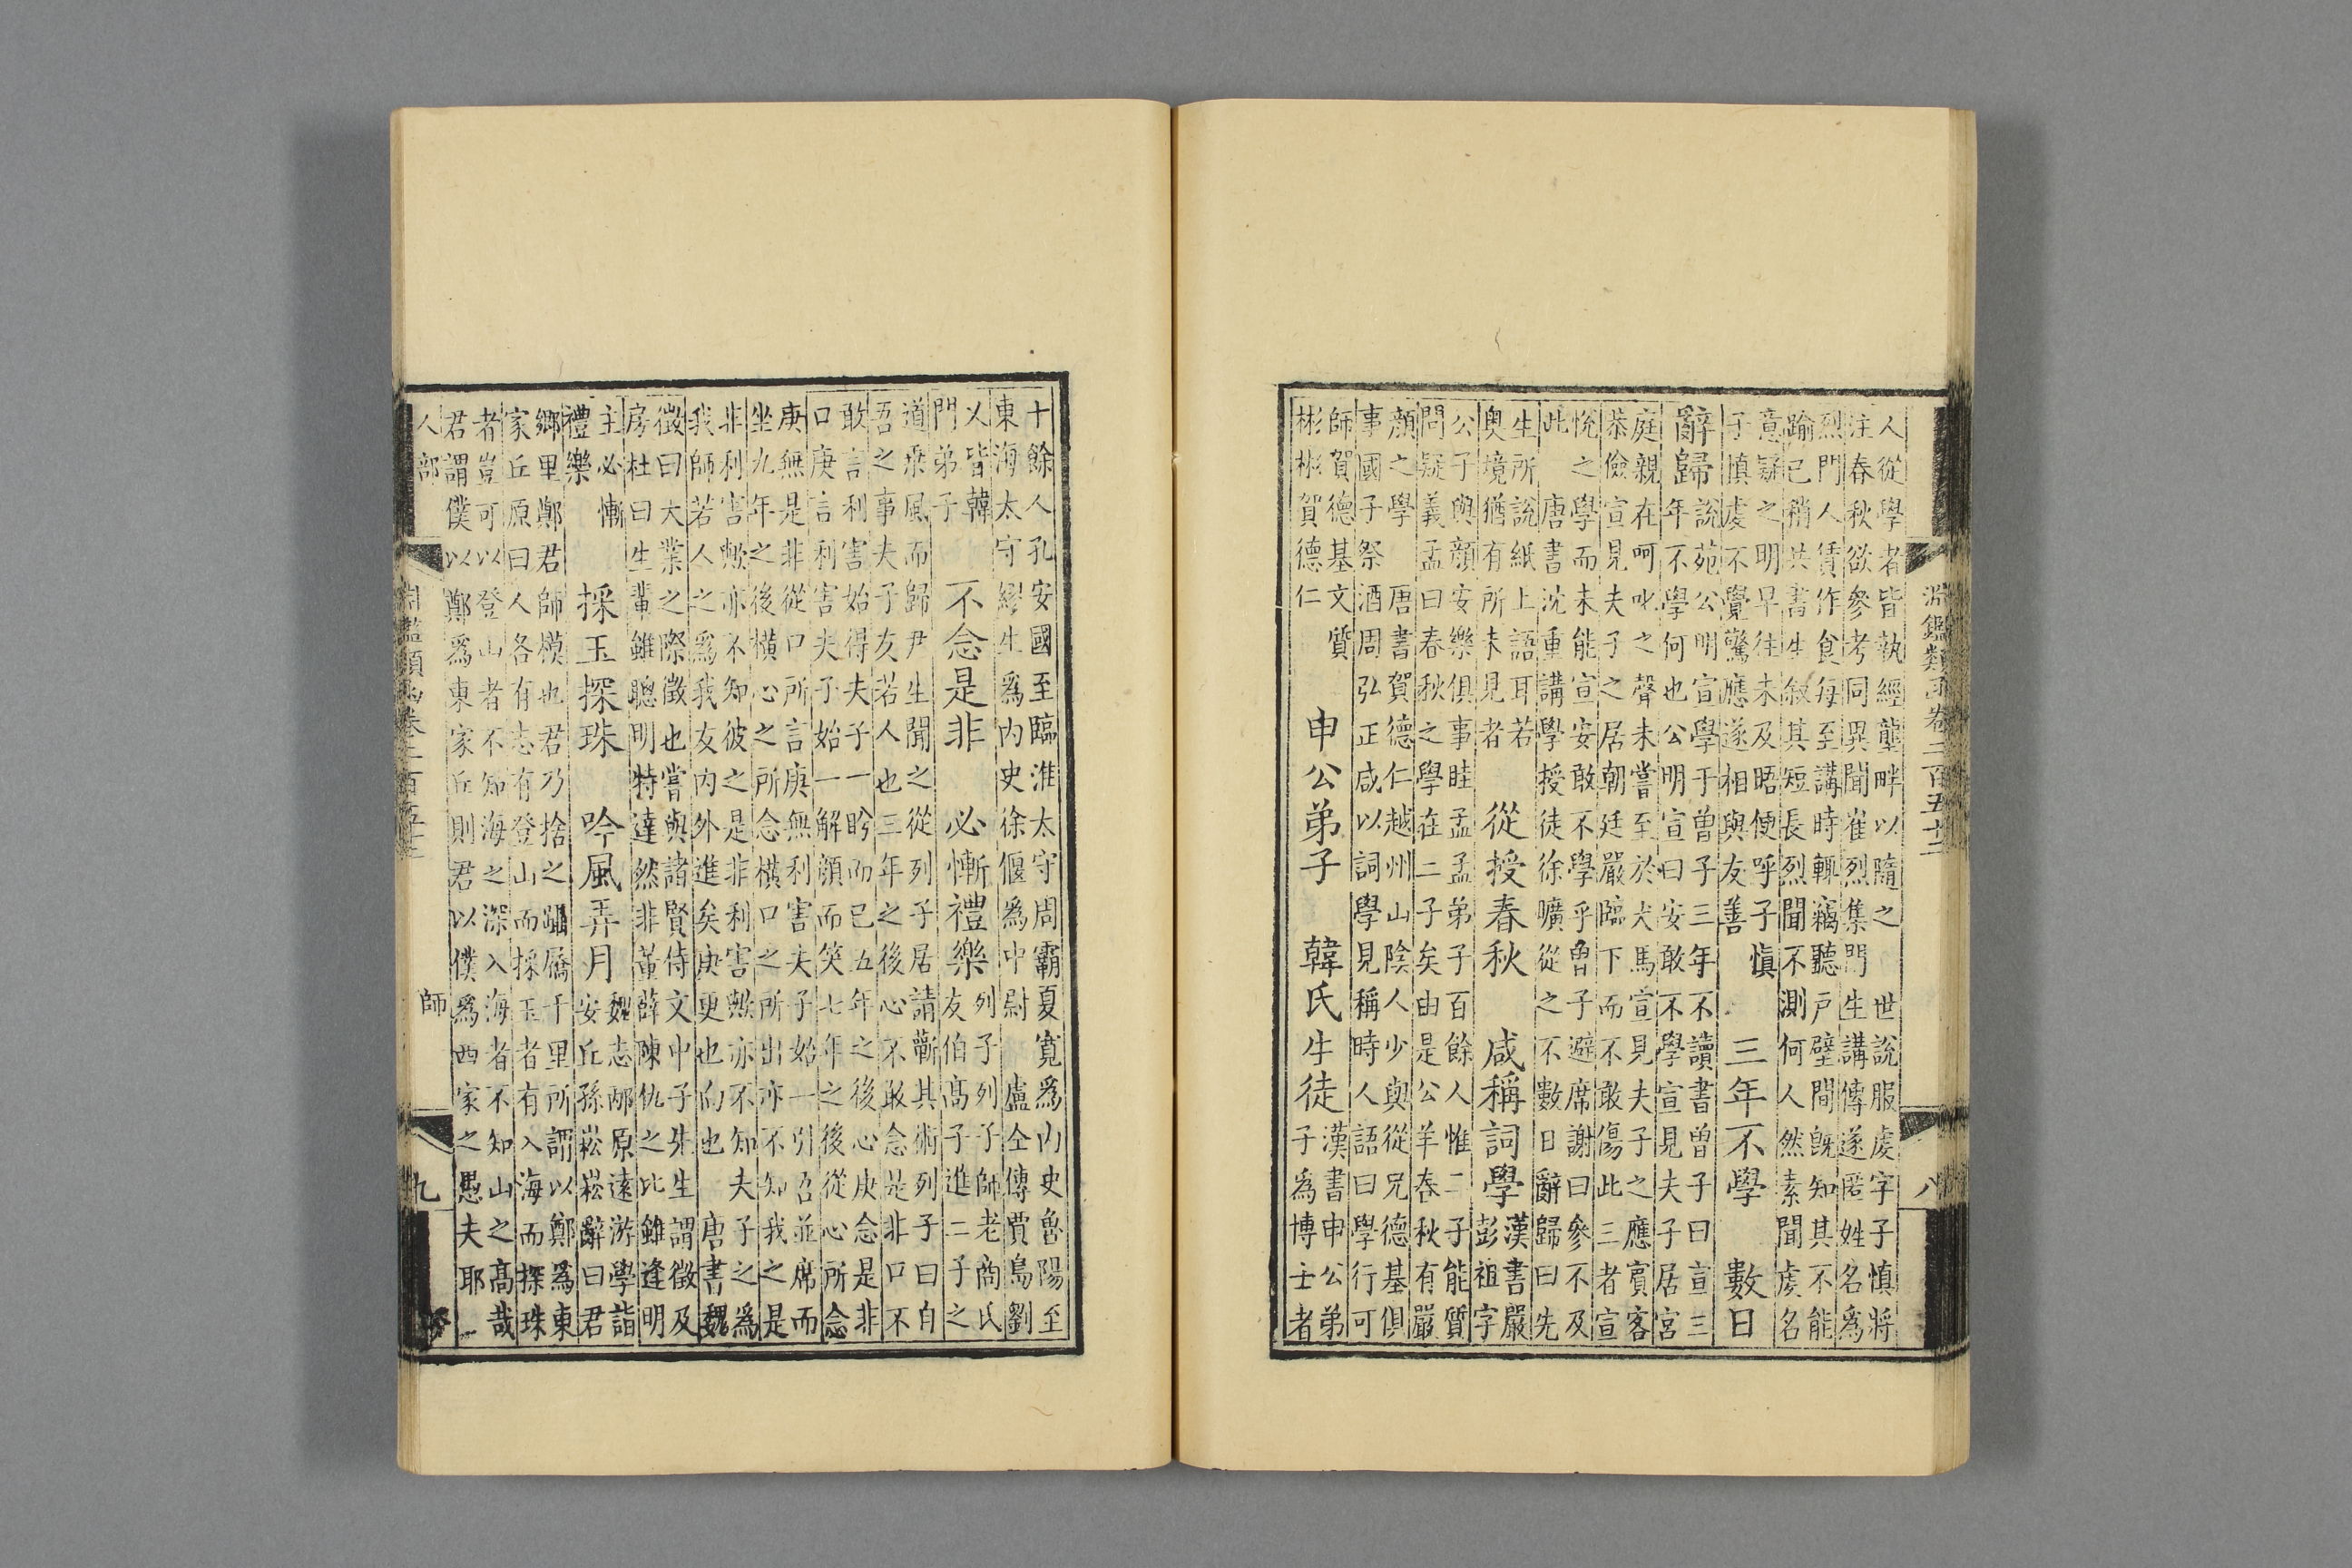 淵鑑類函卷二百五十二
八
人從學者皆執經壟畔以隨之　世說服虔字子慎將
注春秋欲參考同異聞崔烈集門生講傳遂匿姓名爲
烈門人賃作食每至講時輒竊聽戶壁間既知其不能
踰已稍共書生敘其短長烈聞不測何人然素聞虔名
意疑之明早往未及晤便呼子慎
子慎虔不覺驚應遂相與友善
三年不學　數日
辭歸
說苑公明宣學于曾子三年不讀書曾子曰宣三
年不學何也公明宣曰安敢不學宣見夫子居宮
庭親在呵叱之聲未嘗至於犬馬宣見夫子之應賓客
恭儉宣見夫子之居朝廷嚴臨下而不敢傷此三者宣
悅之學而未能宣安敢不學乎曾子避席謝曰參不及
此　唐書沈重講學授徒徐曠從之不數日辭歸曰先
生所說紙上語耳若
奧境猶有所未見者
從授春秋　咸稱詞學
漢書嚴
彭祖字
公子與顏安樂俱事眭孟孟弟子百餘人惟二子能質
問疑義孟曰春秋之學在二子矣由是公羊春秋有嚴
顏之學　唐書賀德仁越州山陰人少與從兄德基俱
事國子祭酒周弘正咸以詞學見稱時人語曰學行可
師賀德基文質
彬彬賀德仁
申公弟子　韓氏生徒
漢書申公弟
子爲博士者
十餘人孔安國至臨淮太守周霸夏寬爲內史魯陽至
東海太守繆生爲內史徐偃爲中尉　盧仝傳賈島劉
乂皆韓
門弟子
不念是非　必慚禮樂
列子列子師老商氏
友伯高子進二子之
道乘風而歸尹生聞之從列子居請蘄其術列子曰自
吾之事夫子友若人也三年之後心不敢念是非口不
敢言利害始得夫子一眄而已五年之後心庚念是非
口庚言利害夫子始一解顏而笑七年之後從心所念
庚無是非從口所言庚無利害夫子始一引吾並席而
坐九年之後橫心之所念橫口之所出亦不知我之是
非利害歟亦不知彼之是非利害歟亦不知夫子之爲
我師若人之爲我友內外進矣庚更也的也　唐書魏
徵曰大業之際徵也嘗與諸賢侍文中子先生謂徵及
房杜曰生輩雖聰明特達然非董薛陳仇之比雖逢明
主必慚
禮樂
採玉探珠　吟風弄月
魏志邴原遠游學詣
安丘孫崧崧辭曰君
鄉里鄭君師模也君乃捨之躡屩千里所謂以鄭爲東
家丘原曰人各有志有登山而採玉者有入海而探珠
者豈可以登山者不知海之深入海者不知山之高哉
君謂僕以鄭爲東家丘則君以僕爲西家之愚夫耶一
淵鑑類函卷二百五十二
人部
師
九